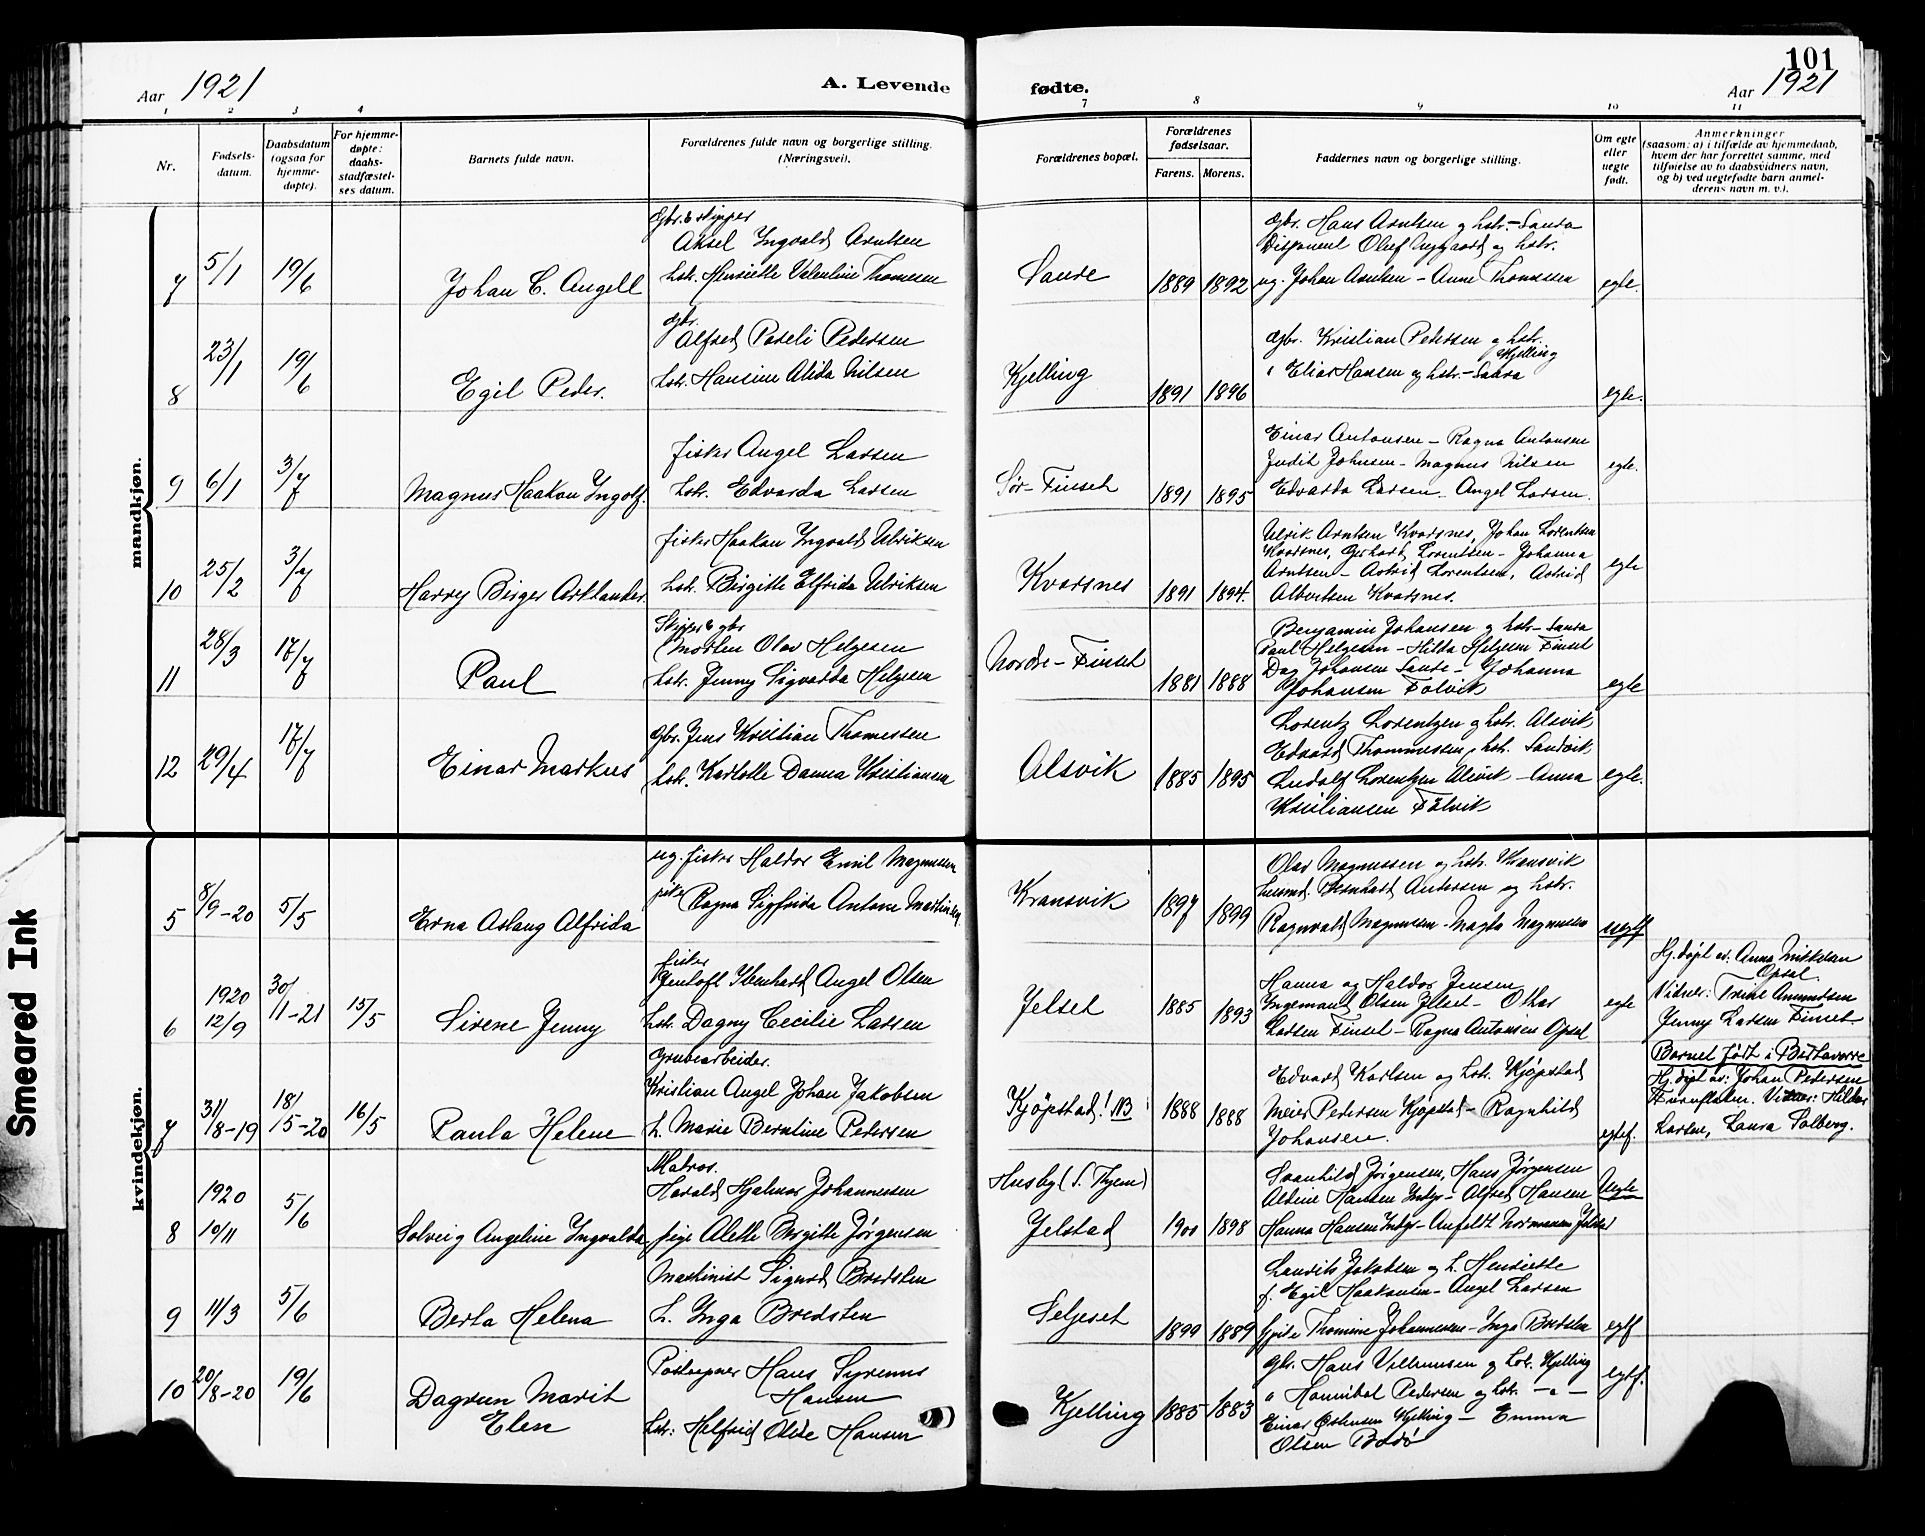 101
Aar 1921
A. Levende
fødte.
Aar 1921
1 2 3 4 7 8 9 10 11
Nr.
Fødsels-
datum.
Daabsdatum
(ogsaa for
hjemme-
døpte).
For hjemme-
døpte:
daabs-
stadfæstel-
ses datum.
Barnets fulde navn.
Forældrenes fulde navn og borgerlige stilling.
(Næringsvei).
Forældrenes bopæl.
Forældrenes
fødselsaar.
Farens. Morens.
Faddernes navn og borgerlige stilling.
Om egte
eller
uegte
født.
Anmerkninger
(saasom: a) i tilfælde av hjemmedaab,
hvem der har forrettet samme, med
tilføielse av to daabsvidners navn,
og b) ved uegtefødte barn anmel-
derens navn m. v.).
mandkjøn.
7 5/1 19/6 Johan C. Angell
Gbr. & skipper
Aksel Ingvald Arntsen
hstr. Henriette Valentine Thomesen
Saure 1889 1892
Gbr. Hans Arntsen og hstr. - Saura
Disponent Oluf Nygaard og hstr.
ug. Johan Arntsen - Anne Thomassen
egte.
8 23/1 19/6 Egil Peder.
Gbr.
Alfred Poseli Pedersen
hstr. Hansine Alida Nilsen
Kjelling 1891 1896
Gbr. Kristian Pedersen og hstr.
Kjelling
" Elias Hansen og hstr. - Saura
egte.
9 6/1 3/7 Magnus Haakon Ingolf.
fisker Angel Larsen
hstr. Edvarda Larsen
Sør-Finset 1891 1895
Einar Antonsen - Ragna Antonsen
Judit Johnsen - Magnus Nilsen
Edvarda Larsen - Angel Larsen.
egte.
10 25/2 3/7 Harry Birger Asklander.
fisker Haakon Ingvald Ulriksen
hstr. Birgitte Elfrida Ulriksen
Kvarsnes 1891 1894.
Ulrik Arntsen Kvarsnes, Johan Lorentsen
Kvarsnes, Gerhard Lorentsen - Johanna
Arntsen - Astrid Lorentsen, Astrid
Albertsen Kvarsnes.
egte
11 28/3 17/7 Paul
Skipper & gbr
Morten Olav Helgesen
hstr. Jenny Sigvarda Helgesen
Nordre-Finset 1881 1888
Benjamin Johansen og hstr - Saura
Paul Helgesen - Hilda Helgesen Finset
Dag Johansen Saure - Johanna
Johansen Følvik
egte
12 29/4 17/7 Einar Markus
Gbr. Jens Kristian Thomessen
hstr. Karlotte Danna Kristiansen
Alsvik 1885 1895
Lorentz Lorentzen og hstr. Alsvik
Edvard Thommessen, hstr. Sandvik
Ludolf Lorentzen Alsvik - Anna
Kristiansen Følvik
egte.
kvindekjøn.
5 8/9-20 5/5 Erna Aslaug Alfrida
ug. fisker Haldor Emil Magnussen
pike Ragna Sigfrida Antone Martinsen
Kransvik 1897 1899
Olav Magnussen og hstr. Kransvik
Bernhard Andersen og hstr.
Ragnvald Magnussen - Magta Magnussen
uegtf
6 1920 12/9 30/11-21 15/5 Sirene Jenny
fisker
Angel Olsen
hstr. Dagny Cecilie Larsen
Jelset 1885 1893
Hanna og Haldor Jensen
Ingemand Olsen Jelset - Oskar
Larsen Finset - Ragna Antonsen Opsal
egte
Hj. døpt av. Anna Mikkelsen
Opsal
Vidner: Trine Amundsen
Jenny Larsen Finset.
7 31/8-19 18/5-20 16/5 Paula Helene
Grubearbeider.
Kristian Angel Johan Jakobsen
h. Marie Berntine Pedersen
Kjøpstad! NB 1888 1888
Edvard Karlsen og hstr. Kjøpstad
Meier Pedersen Kjøpstad - Ragnhild
Johansen.
egtef.
Barnet født i
Hj. døpt av: Johan Pedersen
Furuflaten. Vidner: Hilda
Larsen, Laura Solberg.
8 1920 10/11 5/6 Solveig Angeline Ingvalda
Matros.
Harald Hjalmar Johannessen
pige Alette Birgitte Jørgensen
Husby (S. Thjem)
Jelstad 1900 1898
Svanhild Jørgensen, Hans Jørgensen
Aldine Hansen Indyr - Alfred Hansen
Hanna Hansen Indyr - Anfeldt Normannsen Jelstad
Uegte
9 11/3 5/6 Berta Helena
Maskinist Sigurd Bredsten
h. Inga Bredsten
Seljeset 1899 1889
Laurits Jakobsen og h. Henriette
f. Egil Haakonsen - Angel Larsen
Thomine Johannesen - Inga Bredsten
egtf
10 20/8-20 19/6 Dagrun Marit
Elen
Postaapner Hans Syrenus
Hansen
hstr: Helfrid Olise Hansen
Kjelling 1885 1883
Gbr. Hans Villumsen og hstr. Kjelling
" Hannibal Pedersen og hstr. - " -
Einar Kjelling - Emma
Olsen Bodø
egtf.
Smeared Ink